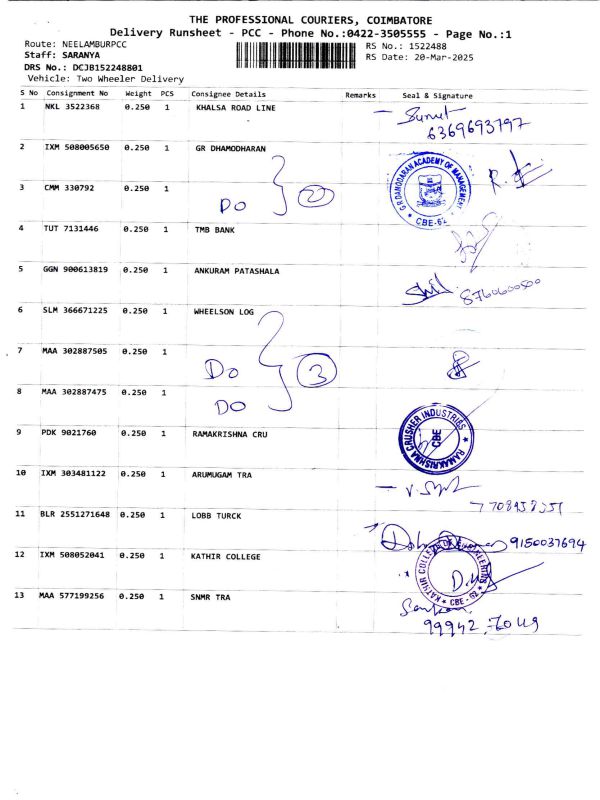 THE PROFESSIONAL COURIERS, COIMBATORE
Delivery Runsheet - PCC - Phone No.:0422-3505555 - Page No.:1
Route: NEELAMBURPCC
RS No.: 1522488
Staff: SARANYA
RS Date: 20-Mar-2025
DRS No.: DCJB152248801
Vehicle: Two Wheeler Delivery
S No Consignment No Weight PCS Consignee Details Remarks Seal & Signature
1 NKL 3522368 0.250 1 KHALSA ROAD LINE
6369693797
2 IXM 508005650 0.250 1 GR DHAMODHARAN
G.R.DAMODARAN ACADEMY OF MANAGEMENT
* CBE-62 *
3 CMM 330792 0.250 1
Do 2
4 TUT 7131446 0.250 1 TMB BANK
5 GGN 900613819 0.250 1 ANKURAM PATASHALA
6 SLM 366671225 0.250 1 WHEELSON LOG
7 MAA 302887505 0.250 1
Do 3
8 MAA 302887475 0.250 1
Do
9 PDK 9021760 0.250 1 RAMAKRISHNA CRU
RAMAKRISHNA CRUSHER INDUSTRIES
CBE
10 IXM 303481122 0.250 1 ARUMUGAM TRA
11 BLR 2551271648 0.250 1 LOBB TURCK
9150037694
12 IXM 508052041 0.250 1 KATHIR COLLEGE
KATHIR COLLEGE OF ENGINEERING
* CBE - 62 *
13 MAA 577199256 0.250 1 SNMR TRA